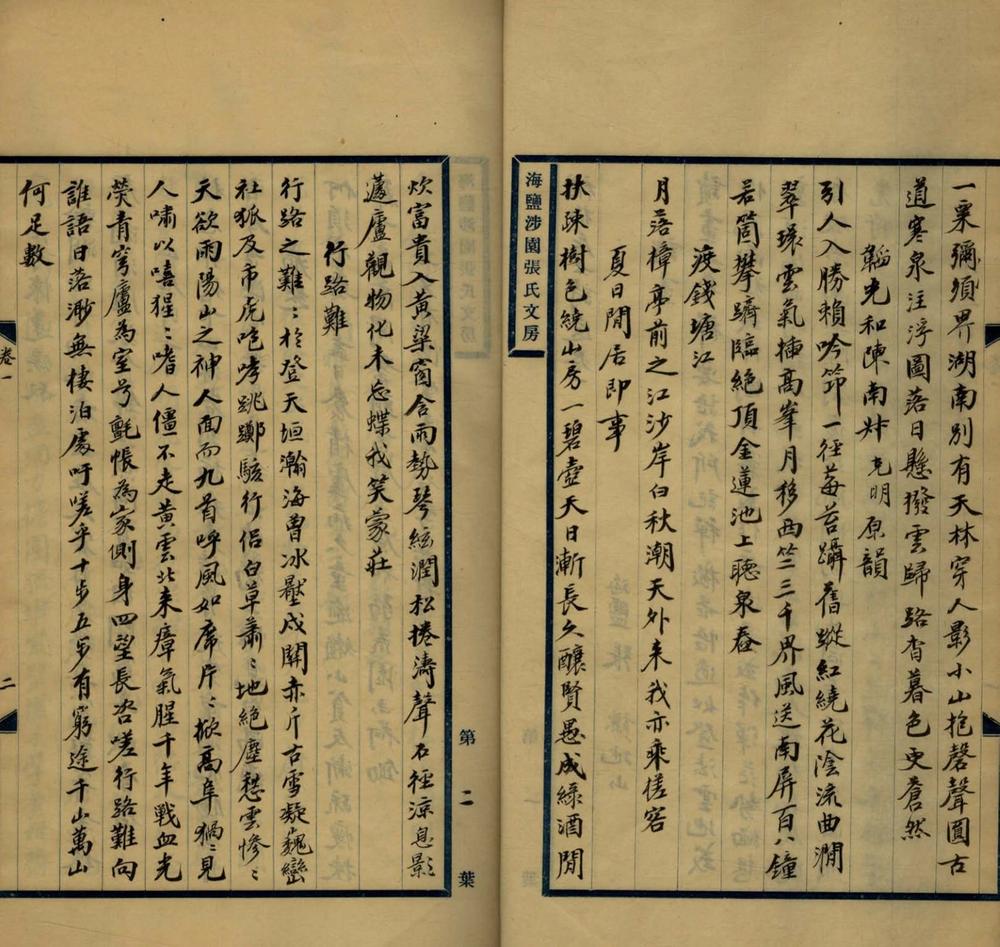 一粟彌須界湖南別有天林穿人影小山抱磬聲圓古
道寒泉注浮圖落日懸撥雲歸路杳暮色更蒼然
韜光和陳南村克明原韻
引人入勝賴吟筇一徑莓苔躡舊蹤紅繞花陰流曲澗
翠環雲氣插高峯月移西竺三千界風送南屏百八鐘
若箇攀躋臨絕頂金蓮池上聽泉舂
渡錢塘江
月落樟亭前之江沙岸白秋潮天外來我亦乘槎客
夏日閒居即事
扶疎樹色繞山房一碧壺天日漸長久釀賢愚成綠酒閒
海鹽涉園張氏文房
第二葉
炊富貴入黃粱窗含雨勢琴絃潤松捲濤聲石徑涼息影
蘧廬觀物化未忘蝶我笑蒙莊
行路難
行路之難:於登天垣瀚海曾冰壓戍關赤斤古雪凝巍巒
社狐及市虎咆哮跳躑駭行侶白草蕭:地絕塵愁雲慘:
天欲雨陽山之神人面而九首呼風如席片:掀高阜猧:見
人嘯以嘻猩:嗜人僵不走黃雲北來瘴氣腥千年戰血光
熒青穹廬為室兮氈帳為家側身四望長咨嗟行路難向
誰語日落渺無棲泊處吁嗟乎十步五步有窮途千山萬山
何足數
卷一
二